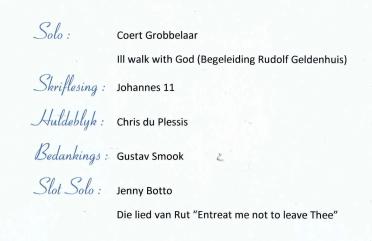 Solo : Coert Grobbelaar
Ill walk with God (Begeleiding Rudolf Geldenhuis)
Skriflesing : Johannes 11
Huldeblyk : Chris du Plessis
Bedankings : Gustav Smook
Slot Solo : Jenny Botto
Die lied van Rut "Entreat me not to leave Thee"